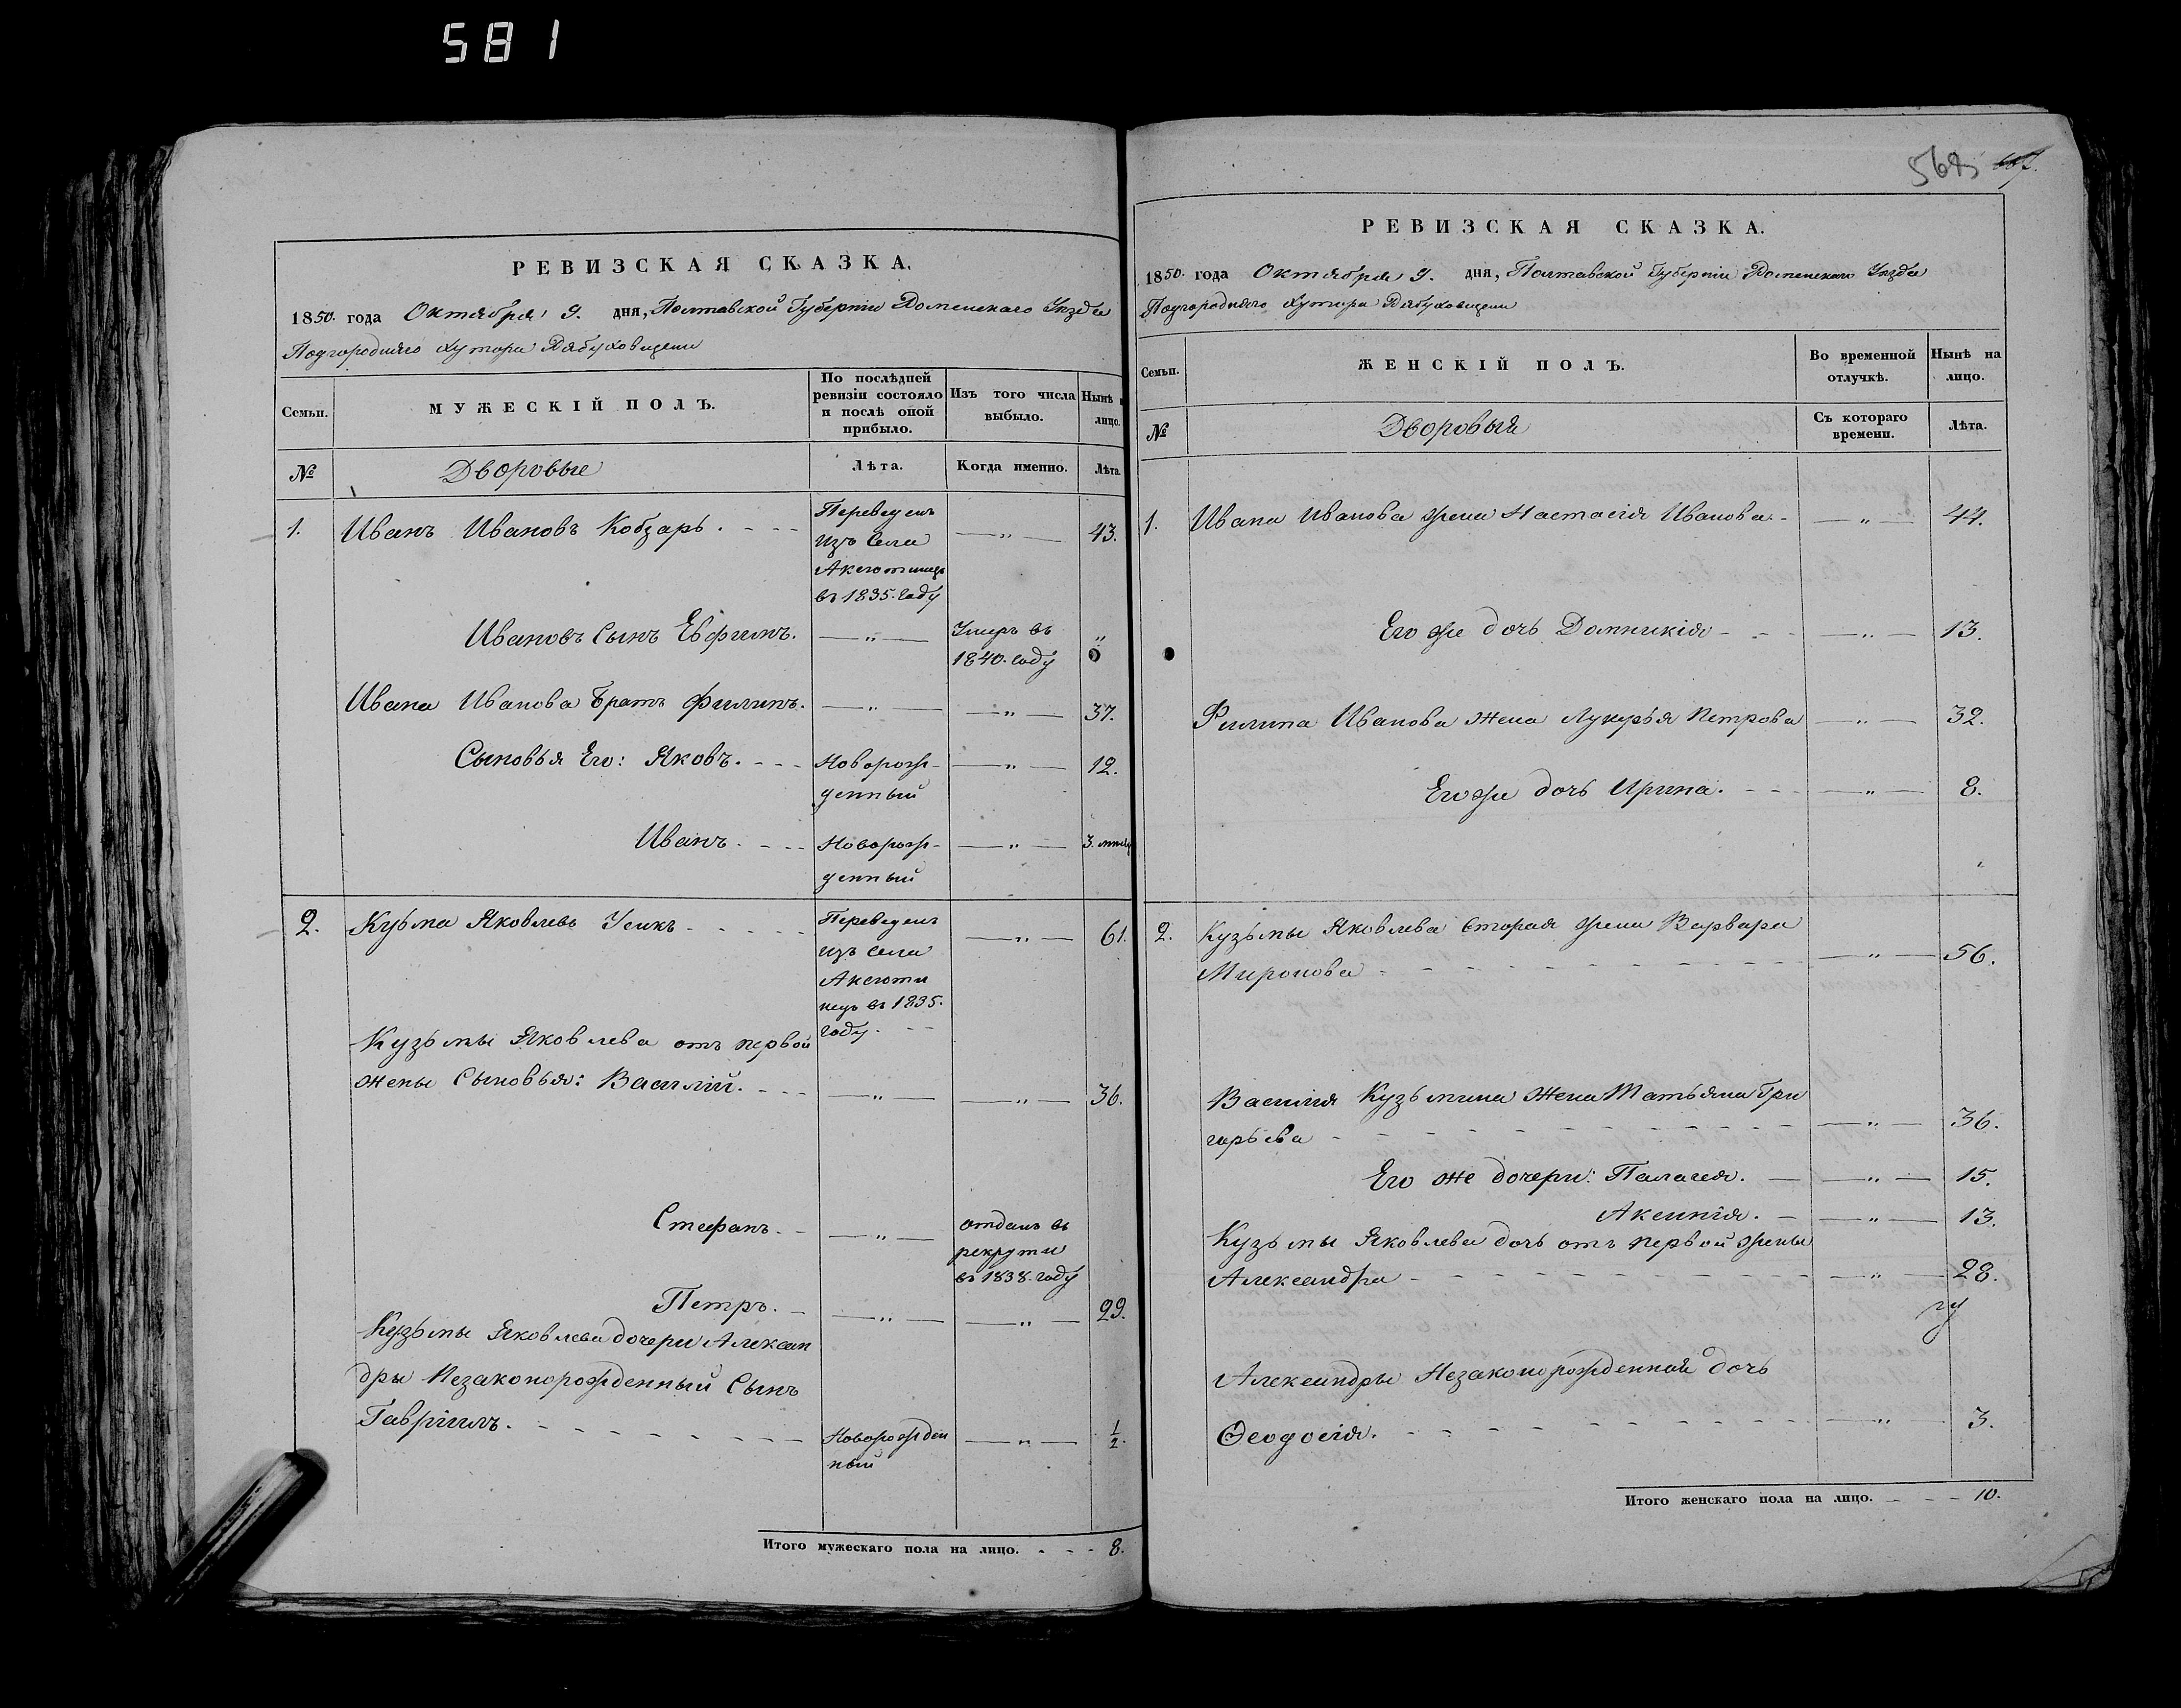 581
РЕВИЗСКАЯ СКАЗКА.
1850. года Октября 9. дня, Полтавской Губерніи Роменскаго Уезда
Подгороднего Хутора Рябуховщени
Семьи.
МУЖЕСКІЙ ПОЛЪ.
По послѣдней ревизіи состояло и послѣ оной прибыло.
Изъ того числа выбыло.
Нынѣ
лицо.
№
Дворовые
Лѣта.
Когда именно.
Лѣта.
1. Иванъ Ивановъ Кобзарь. Переведенъ — „ — 43.
изъ села
Аксютинецъ
въ 1835. году
Ивановъ Сынъ Евфимъ. — „ — Умеръ въ „
1840. году
Ивана Иванова Братъ Филипъ. — „ — — „ — 37.
Сыновья Его: Яковъ. Новорож- — „ — 12.
денный
Иванъ. Новорож- — „ — 3.
денный
2. Кузьма Яковлевъ Усикъ Переведенъ — „ — 61.
изъ села
Аксюти
нецъ въ 1835.
году.
Кузьмы Яковлева отъ первой
жены Сыновья: Василій. — „ — — „ — 36.
Стефанъ. — „ — отданъ въ
рекруты
въ 1838. году
Петръ. — „ — — „ — 29.
Кузьмы Яковлева дочери Алексан
дры Незаконорожденный Сынъ
Гавріилъ. Новорожден — „ — ½.
ный
Итого мужескаго пола на лицо. 8.
568
РЕВИЗСКАЯ СКАЗКА.
1850. года Октября 9. дня, Полтавской Губерніи Роменскаго Уезда
Подгороднего Хутора Рябуховщени
Семьи.
ЖЕНСКІЙ ПОЛЪ.
Во временной отлучкѣ.
Нынѣ на лицо.
№
Дворовыя
Съ котораго времени.
Лѣта.
1. Ивана Иванова жена Настасія Иванова — „ — 44.
Его же дочь Домникія — „ — 13.
Филипа Иванова жена Лукерья Петрова — „ — 32.
Его же дочь Ирина. — „ — 8.
2. Кузьмы Яковлева вторая жена Варвара
Миронова — „ — 56.
Василія Кузьмина жена Татьяна Гри
горьева — „ — 36.
Его же дочери: Палагея. — „ — 15.
Аксинія. — „ — 13.
Кузьмы Яковлева дочь отъ первой жены
Александра — „ — 28.
Александры Незаконорожденная дочь
Ѳеодосія. — „ — 3.
Итого женскаго пола на лицо. 10.